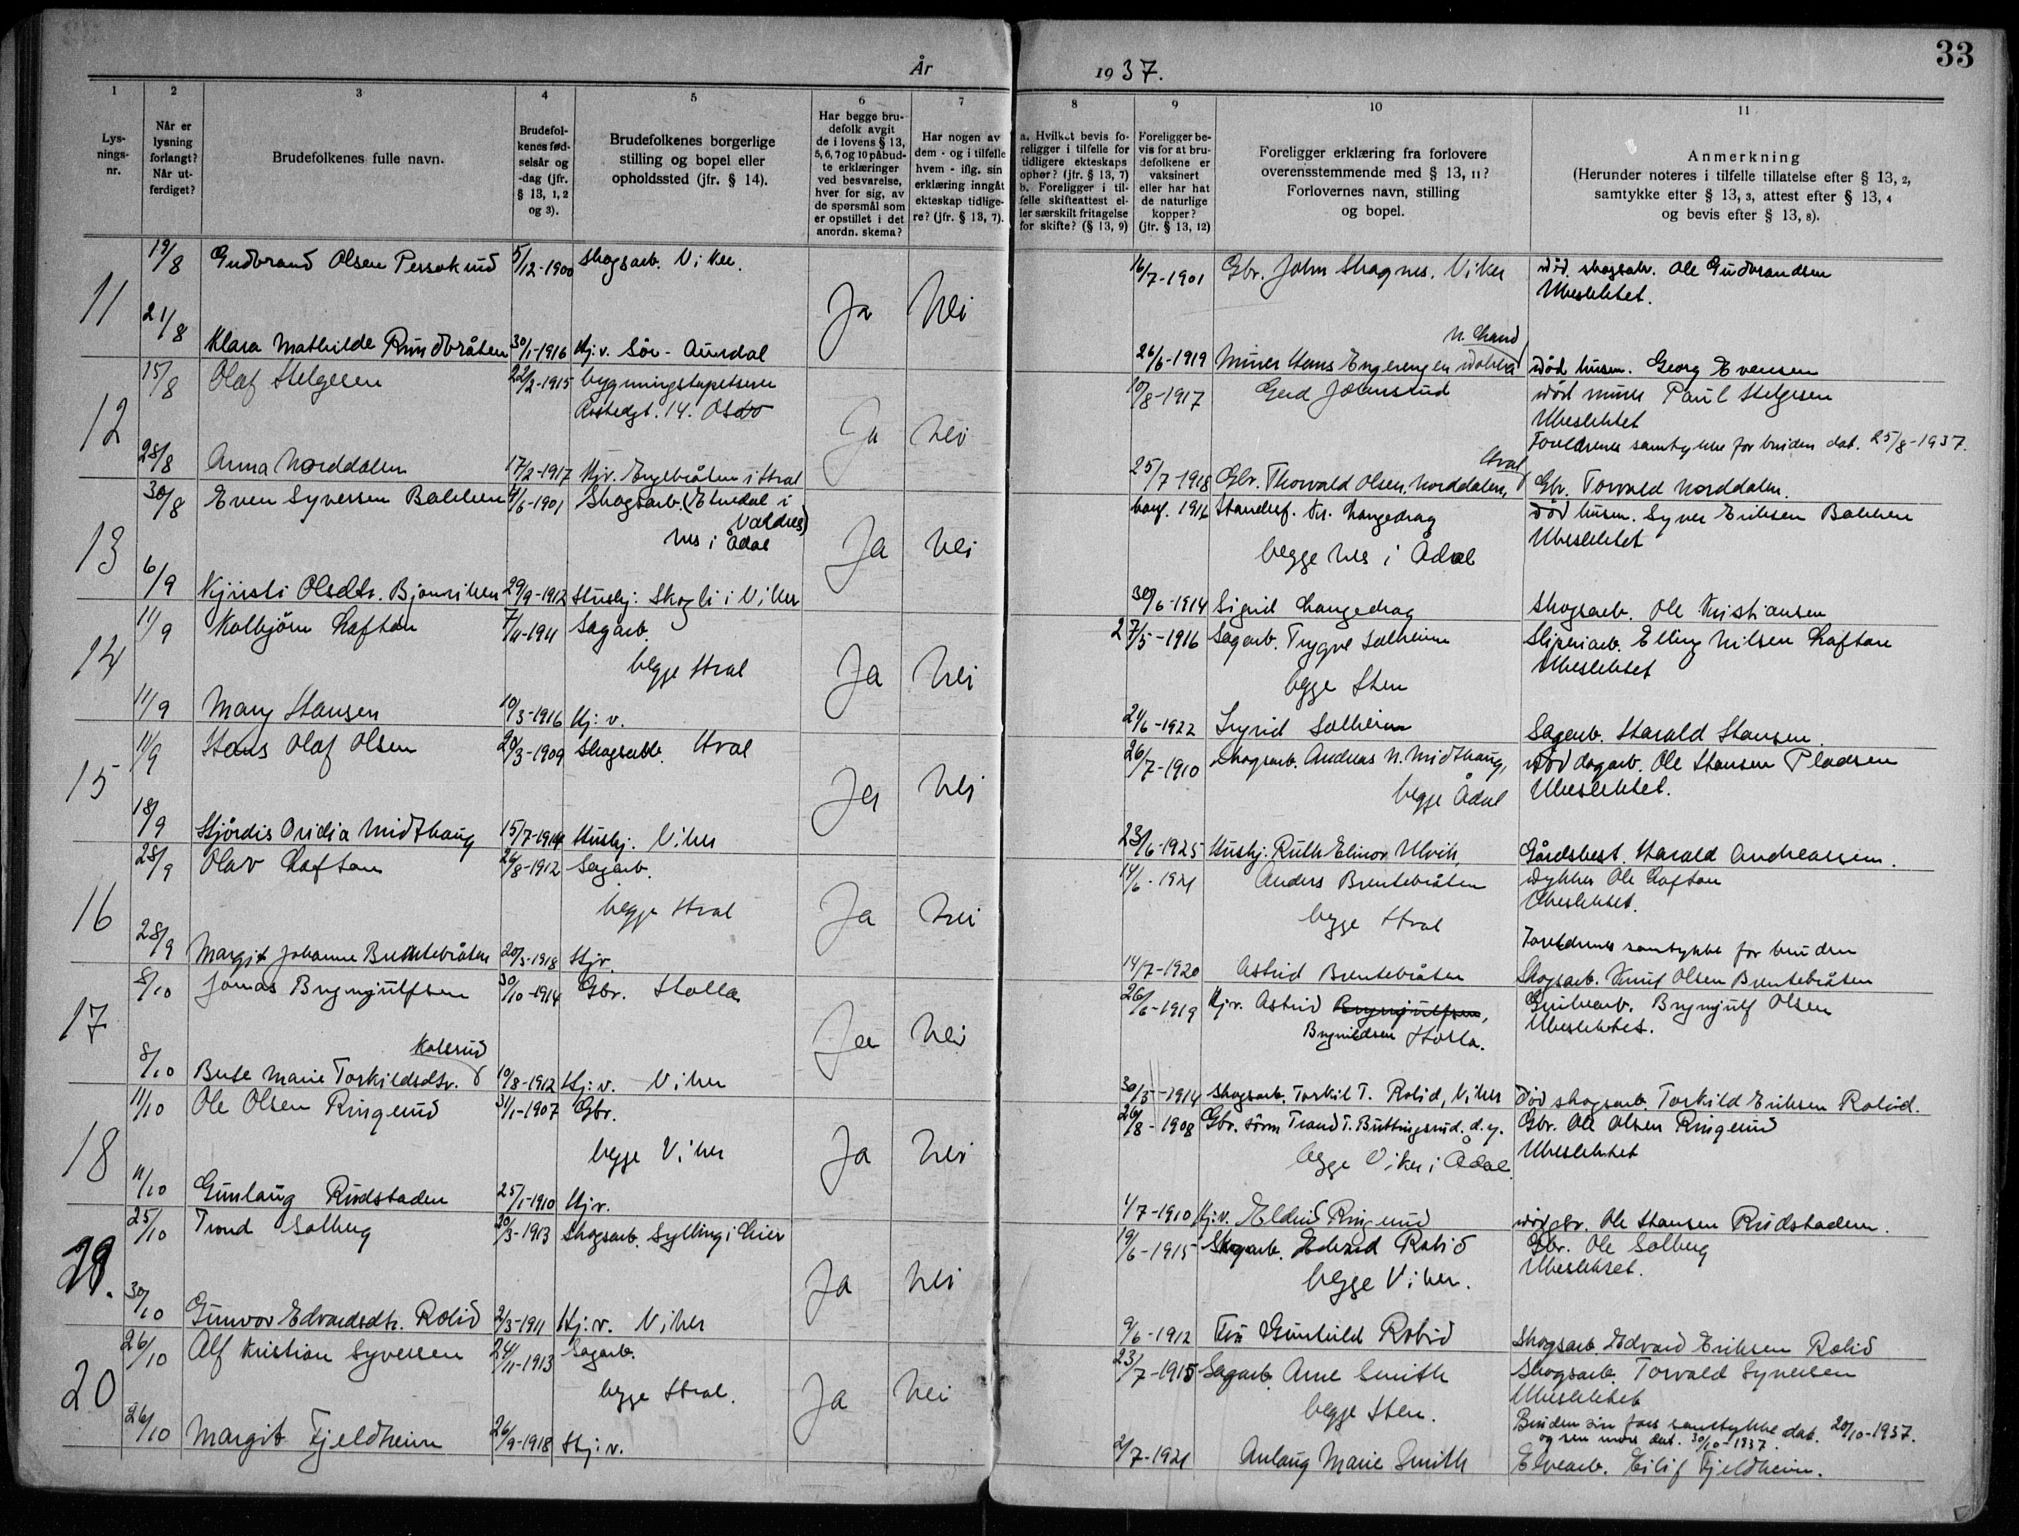 33
År
19 37.
1
2
3
4
5
6
7
8
9
10
11
Lys-
nings-
nr.
Når er
lysning
forlangt?
Når ut-
ferdiget?
Brudefolkenes fulle navn.
Brudefol-
kenes fød-
selsår og
-dag (jfr.
§ 13, 1, 2
og 3).
Brudefolkenes borgerlige
stilling og bopel eller
opholdssted (jfr. § 14).
Har begge bru-
defolk avgit
de i lovens § 13,
5, 6, 7 og 10 påbud-
te erklæringer
ved besvarelse,
hver for sig, av
de spørsmål som
er opstillet i det
anordn. skema?
Har nogen av
dem - og i tilfelle
hvem - iflg. sin
erklæring inngått
ekteskap tidlige-
re? (jfr. § 13, 7).
a. Hvilket bevis fo-
religger i tilfelle for
tidligere ekteskaps
ophør? (jfr. § 13, 7)
b. Foreligger i til-
felle skifteattest el-
ler særskilt fritagelse
for skifte? (§ 13, 9)
Foreligger be-
vis for at bru-
defolkene er
vaksinert
eller har hat
de naturlige
kopper?
(jfr. § 13, 12)
Foreligger erklæring fra forlovere
overensstemmende med § 13, 11?
Forlovernes navn, stilling
og bopel.
Anmerkning
(Herunder noteres i tilfelle tillatelse efter § 13, 2,
samtykke efter § 13, 3, attest efter § 13, 4
og bevis efter § 13, 8).
11
19/8 Gudbrand Olsen Persokrud 5/12-1900 Skogsarb. Viker. 16/7-1901 Gbr. John Skagnes. Viker død skogsarb. Ole Gudbrandsen
Ja Nei Ubeslektet.
21/8 Klara Mathilde Rundbråten 30/1-1916 Hj.v. Sør-Aurdal 26/6-1919 Hans Engerengen død husm. Georg Evensen
12
15/8 Olaf Helgesen 22/2-1915 bygningstapetserer 10/8-1917 Gerd Johnsrud død murer Paul Helgesen
14. Oslo Ubeslektet
Ja Nei Foreldrenes samtykke for bruden dat. 25/8-1937.
Hval
28/8 Anna Norddalen 17/2-1917 Hjv. Engebråten i Hval 25/7-1918 Gbr. Thorvald Olsen. Norddalen, Gbr. Torvald Norddalen.
13
30/8 Even Syversen Bakken 4/6-1901 Skogsarb. (Etnedal i 1916 Kr. Langedrag død husm. Syver Eriksen Bakken
Valdres)
Nes i Ådal Ja Nei begge Nes i Ådal Ubeslektet
6/9 Kjristi Olsdtr. Bjonviken 29/9-1912 Hushj. Skogli i Viker 30/6-1914 Sigrid Langedrag Skogsarb. Ole Kristiansen
14
11/9 Kolbjörn Lafton 7/4-1911 Sagarb. 27/5-1916 Sagarb. Trygve Solheim Sliperiarb. Elling Nilsen Lafton
begge Hval Ja Nei begge Hen Ubeslektet
11/9 Mary Hansen 10/3-1916 Hj.v. 21/6-1922 Ingrid Solheim Sagarb. Harald Hansen.
15
11/9 Hans Olaf Olsen 20/3-1909 Skogsarb. Hval 26/7-1910 Skogsarb. Andreas N. Midthaug, død dagarb. Ole Hansen Pladsen
Ja Nei begge Ådal Ubeslektet.
18/9 Hjördis Oridia Midthaug 15/7-1914 Hushj. Viker 23/6-1925 Hushj. Ruth Elinor Ulvik, Gårdsbest. Harald Andreassen.
16
28/9 Olav Lafton 26/8-1912 Sagarb. 14/6-1921 Anders Brentebråten dykker Ole Lafton
begge Hval Ja Nei begge Hval Ubeslektet.
Foreldrenes samtykke for bruden
28/9 Margit Johanne Brentebråten 20/3-1918 Hjv. 14/7-1920 Astrid Brentebråten Skogsarb. Knut Olsen Brentebråten
17
8/10 Jonas Brynjulfsen 30/10-1914 Gbr. Holla 26/6-1919 Hjv. Astrid Brynjulfsen, Grubearb. Brynjulf Olsen
Ja Nei Brynildsen Holla. Ubeslektet.
Kolsrud
8/10 Berte Marie Torkildsdtr. 10/8-1912 Hj.v. Viker 30/5-1914 Skogsarb. Torkil T. Rolid, Viker død skogsarb. Torkild Eriksen Rolid.
18
11/10 Ole Olsen Ringerud 31/1-1907 Gbr. 26/8-1908 Gbr. sönn Trand T. Buttingsrud. d.y. Gbr. Ole Olsen Ringerud
begge Viker Ja Nei begge Viker i Ådal Ubeslektet
11/10 Gunlaug Rudstaden 25/1-1910 Hjv. 1/7-1910 Hj.v. Eldrid Ringerud død gbr. Ole Hansen Rudstaden.
19.
25/10 Trond Solberg 30/3-1913 Skogsarb. Sylling i Lier 19/6-1915 Skogarb. Edvard Rolid Gbr. Ole Solberg
Ja Nei begge Viker. Ubeslektet.
30/10 Gunvor Edvardsdtr. Rolid 2/3-1911 Hj.v. Viker 9/6-1912 Fru Gunhild Rolid Skogsarb. Edvard Eriksen Rolid
20
26/10 Alf Kristian Syversen 24/11-1913 Sagarb. 23/7-1915 Sagarb. Arne Smith Skogsarb. Torvald Syversen
begge Hval. Ja Nei begge Hen. Ubeslektet
Bruden sin fars samtykke dat. 20/10-1937.
og sin mors dat. 30/10-1937.
26/10 Margit Fjeldheim 26/9-1918 Hj.v. 2/7-1921 Anlaug Marie Smith Elvearb. Eilif Fjeldheim.